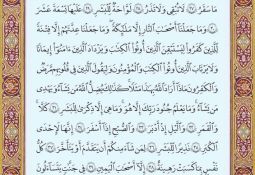 مَا سَقَرُ ﴿٢٧﴾ لَا تُبْقِي وَلَا تَذَرُ ﴿٢٨﴾ لَوَّاحَةٌ لِّلْبَشَرِ ﴿٢٩﴾ عَلَيْهَا تِسْعَةَ عَشَرَ
﴿٣٠﴾ وَمَا جَعَلْنَا أَصْحَٰبَ النَّارِ إِلَّا مَلَٰٓئِكَةً ۙ وَمَا جَعَلْنَا عِدَّتَهُمْ إِلَّا فِتْنَةً
لِّلَّذِينَ كَفَرُوا لِيَسْتَيْقِنَ الَّذِينَ أُوتُوا الْكِتَٰبَ وَيَزْدَادَ الَّذِينَ ءَامَنُوٓا إِيمَٰنًا
وَلَا يَرْتَابَ الَّذِينَ أُوتُوا الْكِتَٰبَ وَالْمُؤْمِنُونَ وَلِيَقُولَ الَّذِينَ فِي قُلُوبِهِم مَّرَضٌ
وَالْكَٰفِرُونَ مَاذَآ أَرَادَ اللَّهُ بِهَٰذَا مَثَلًا كَذَٰلِكَ يُضِلُّ اللَّهُ مَن يَشَآءُ وَيَهْدِي
مَن يَشَآءُ وَمَا يَعْلَمُ جُنُودَ رَبِّكَ إِلَّا هُوَ وَمَا هِيَ إِلَّا ذِكْرَىٰ لِلْبَشَرِ ﴿٣١﴾ كَلَّا
وَالْقَمَرِ ﴿٣٢﴾ وَالَّيْلِ إِذْ أَدْبَرَ ﴿٣٣﴾ وَالصُّبْحِ إِذَآ أَسْفَرَ ﴿٣٤﴾ إِنَّهَا لَإِحْدَى
الْكُبَرِ ﴿٣٥﴾ نَذِيرًا لِّلْبَشَرِ ﴿٣٦﴾ لِمَن شَآءَ مِنكُمْ أَن يَتَقَدَّمَ أَوْ يَتَأَخَّرَ ﴿٣٧﴾ كُلُّ
نَفْسٍۭ بِمَا كَسَبَتْ رَهِينَةٌ ﴿٣٨﴾ إِلَّآ أَصْحَٰبَ الْيَمِينِ ﴿٣٩﴾ فِي جَنَّٰتٍ يَتَسَآءَلُونَ